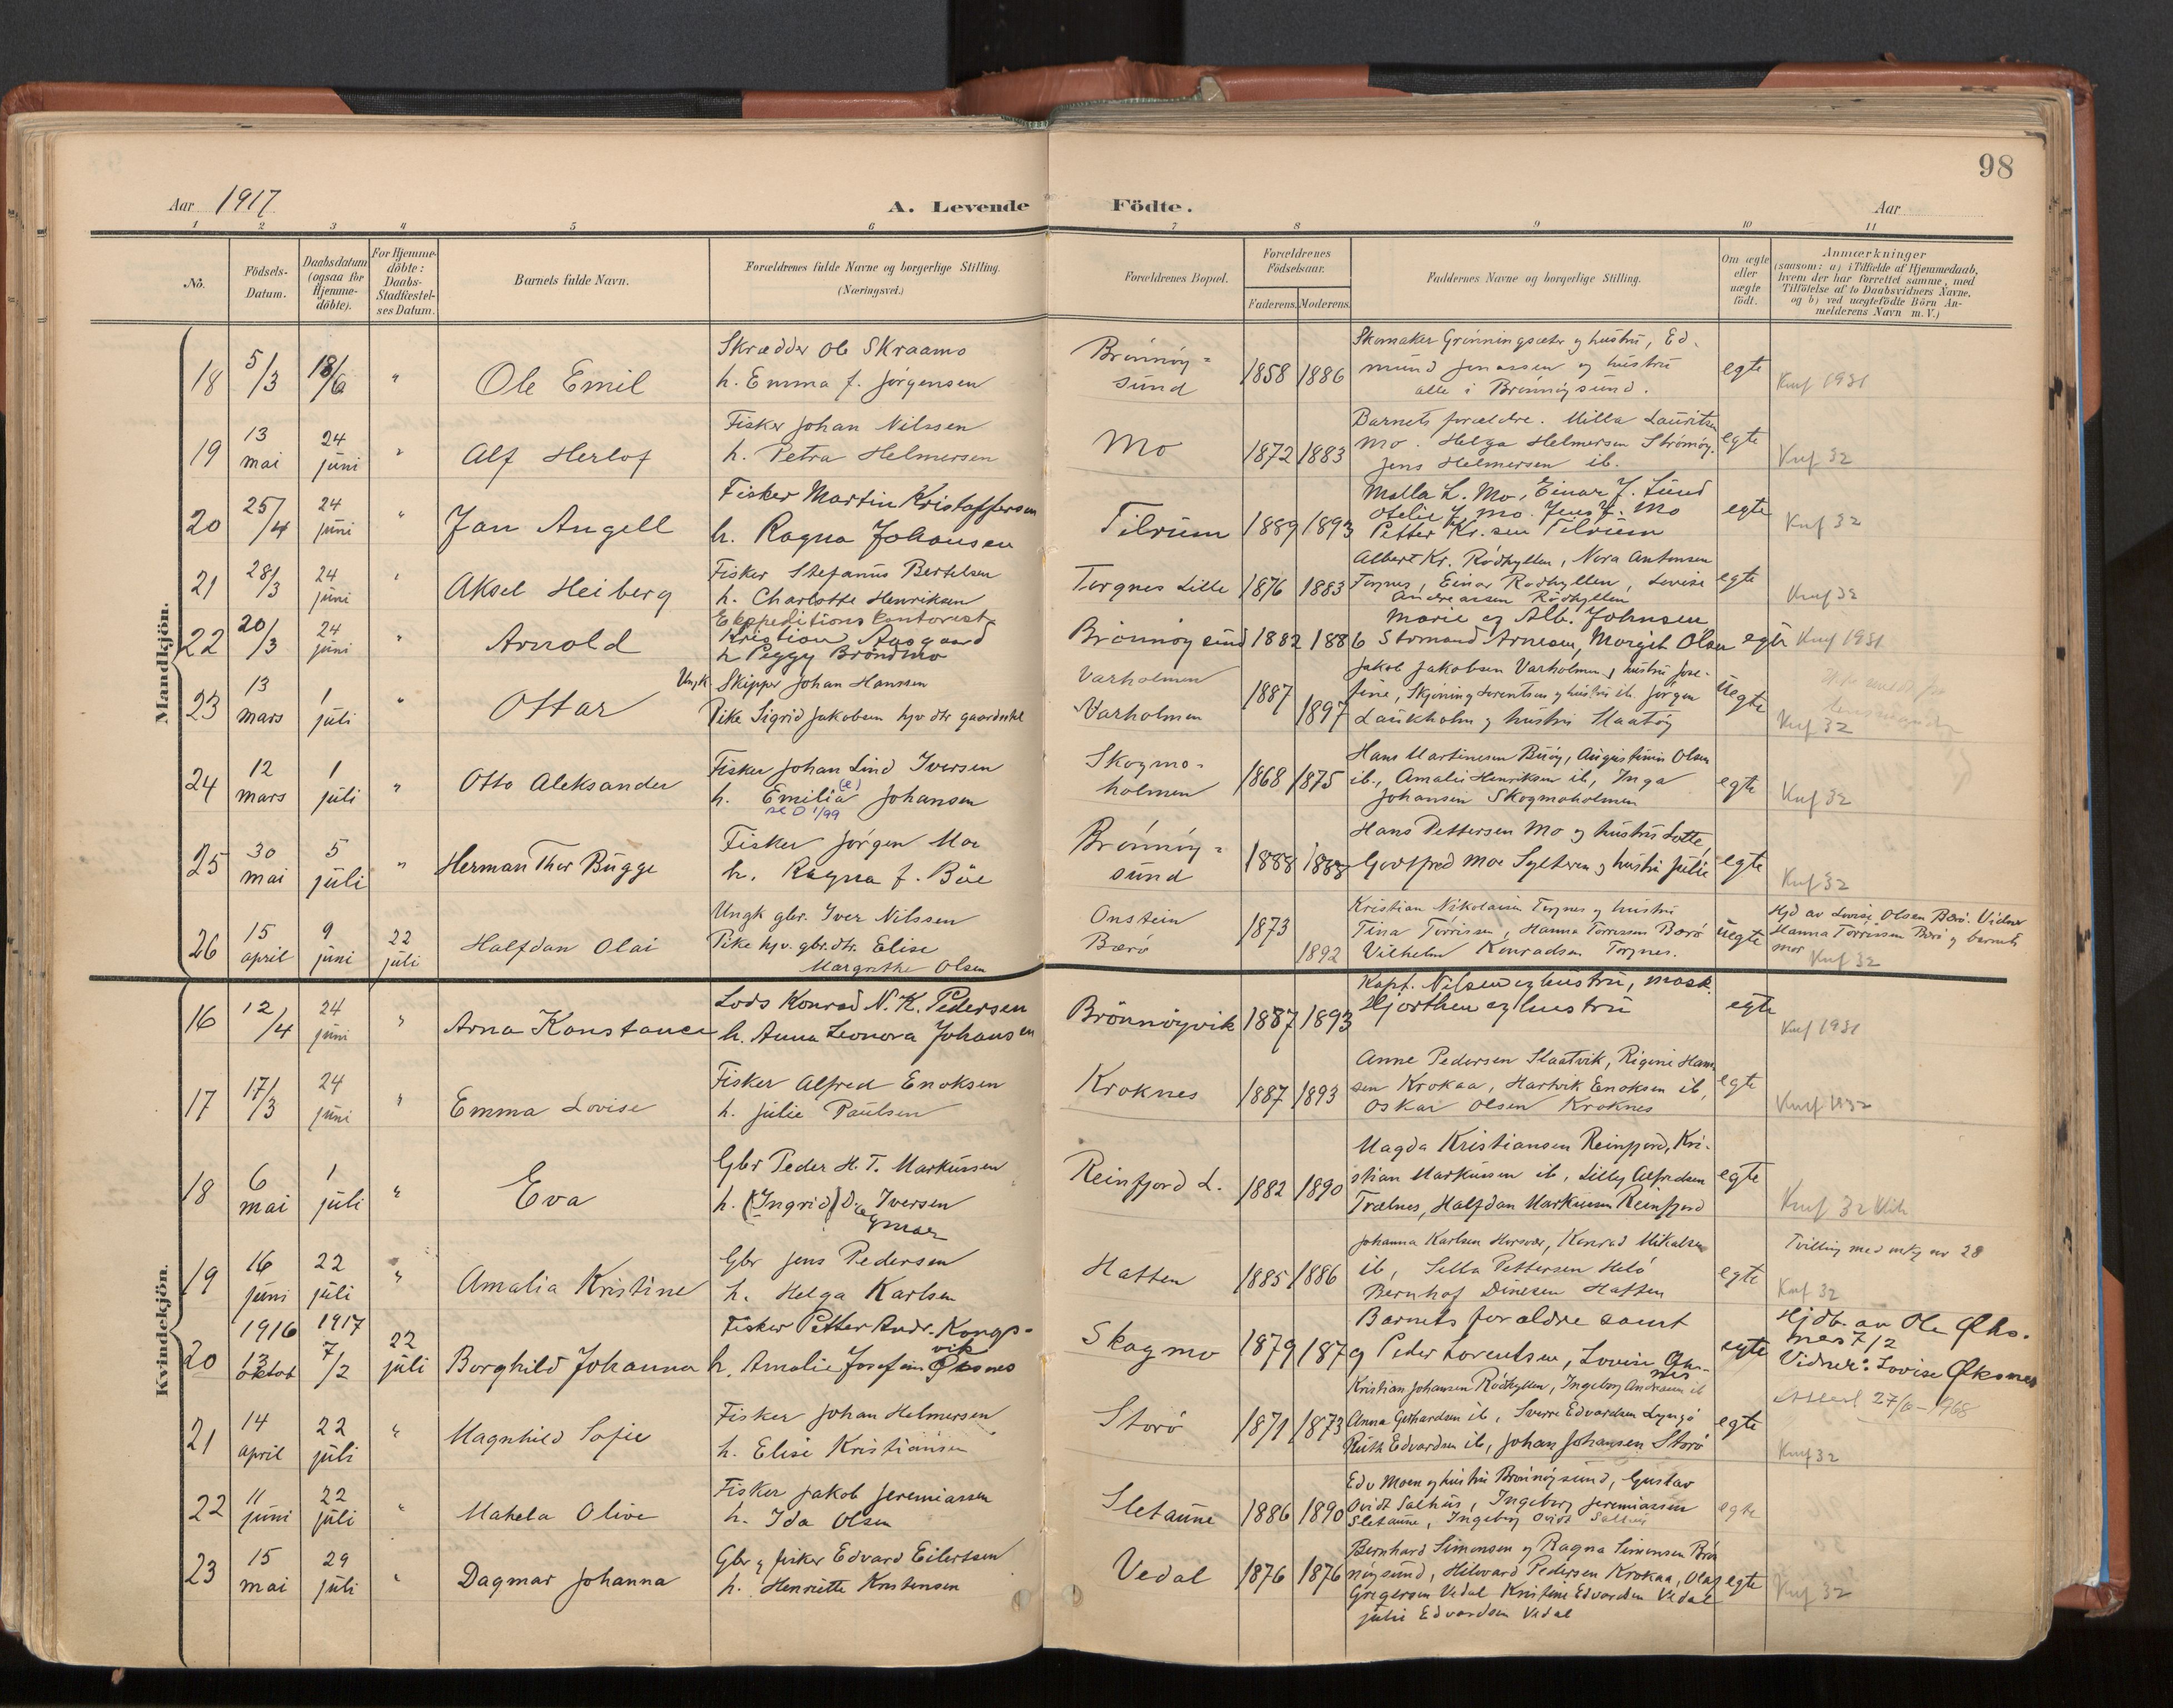 98
Aar 1917
A. Levende Födte.
Aar
1 2 3 4 5 6 7 8 9 10 11
No.
Födsels-
Datum.
Daabsdatum
(ogsaa for
Hjemme-
döbte).
For Hjemme-
döbte:
Daabs-
Stadfæstel-
ses Datum.
Barnets fulde Navn.
Forældrenes fulde Navne og borgerlige Stilling.
(Næringsvei.)
Forældrenes Bopæl.
Forældrenes
Födselsaar.
Faderens. Moderens.
Faddernes Navne og borgerlige Stilling.
Om ægte
eller
uægte
födt.
Anmærkninger
(saasom: a) i Tilfælde af Hjemmedaab,
hvem der har forrettet samme, med
Tilföielse af to Daabsvidners Navne,
og b) ved uægtefödte Börn An-
melderens Navn m. V.)
Mandkjön.
18
5/3
18/6
"
Ole Emil
Skrædder Ole Skraamo
h. Emma f. Jørgensen
Brønnøy-
sund
1858 1886
Skomaker Grønningsæter og hustru, Ed-
mund Jonassen og hustru
alle i Brønnøysund.
egte
Knf 1931
19
13
mai
24
juni
"
Alf Herlof
Fisker Johan Nilssen
h. Petra Helmersen
Mo
1872 1883
Barnets forældre. Milla Lauritsen
Mo. Helga Helmersen Strømøy.
Jens Helmersen ib.
egte
Knf 32
20
25/4
24
juni
"
Jan Angell
Fisker Martin Kristoffersen
h. Ragna Johansen
Tilrum
1889 1893
Malla L. Mo, Einar J. Lund
Otelie J. Mo. Jens J. Mo
Petter Kr.sen Tilrum
egte
Knf 32
21
28/3
24
juni
"
Aksel Heiberg
Fisker Stefanus Bertelsen
h. Charlotte Henriksen
Torgnes Lille
1876 1883
Albert Kr. Rødhyllen, Nora Antonsen
Torgnes, Einar Rødhyllen, Lovise
Andreassen Rødhyllen
egte
Knf 32
22
20/3
24
juni
"
Arnold
Ekspeditions kontorist
Kristian Aasgaard
h Peggy Brøndmo
Brønnøysund
1882 1886
Marie og Alb. Johnsen
Stormand Arnesen, Margit Olsen
egte
Knf 1931
23
13
mars
1
juli
"
Ottar
Ungk. Skipper Johan Hanssen
Pike Sigrid Jakobsen hjv dtr gaardsarb
Varholmen
Varholmen
1887
1897
Jakob Jakobsen Varholmen, hustru Jose-
fine, Skjøning Lorentsen og hustru ib. Jørgen
Laukholm og hustru Slaatøy
Uegte
Knf 32
24
12
mars
1
juli
"
Otto Aleksander
Fisker Johan Lind Iversen
h. Emilia (e) Johansen
se D 1/99
Skogmo-
holmen
1868 1875
Hans Martinesen Buøy, Augustinus Olsen
ib., Amalie Henriksen ib, Inga
Johansen Skogmoholmen
egte
Knf 32
25
30
mai
5
juli
"
Herman Thor Bugge
Fisker Jørgen Moe
h. Ragna f. Büe
Brønnøy-
sund
1888 1888
Hans Pettersen Mo og hustru Lotte,
Godtfred Moe Sylteren og hustru Julie
egte
Knf 32
26
15
april
9
juni
22
juli
Halfdan Olai
Ungk gbr. Iver Nilssen
Pike hjv. gbr.dtr. Elise
Margrethe Olsen
Onstein
Bærø
1873
1892
Kristian Nikolaisen Torgnes og hustru
Tina Tørrissen, Hanna Tørrissen Bærø
Vilhelm Konradsen Torgnes.
uegte
Hjd av Lovise Olsen Bærø. Vidner
Hanna Tørrissen Bærø og barnets
mor Knf 32
Kvindekjön.
16
12/4
24
juni
"
Arna Konstance
Lods Konrad N. K. Pedersen
h. Anna Leonora Johansen
Brönnöyvik
1887 1893
Kapt. Nilsen og hustru, mask.
Hjorthen og hustru
egte
Knf 1931
17
17/3
24
juni
"
Emma Lovise
Fisker Alfred Enoksen
h. Julie Paulsen
Kroknes
1887 1893
Anne Pedersen Slaatvik, Rigine Han-
sen Krokaa, Hartvik Enoksen ib,
Oskar Olsen Kroknes
egte
Knf 1932
18
6
mai
1
juli
"
Eva
Gbr Peder H. T. Markussen
h. (Ingrid) Dagmar Iversen
Reinfjord L.
1882 1890
Magda Kristiansen Reinfjord, Kri-
stian Markussen ib, Lilly Alfredsen
Trælnes, Halfdan Markussen Reinfjord
egte
Knf 32
19
16
juni
22
juli
"
Amalia Kristine
Gbr Jens Pedersen
h. Helga Karlsen
Hatten
1885 1886
Johanna Karlsen Horsvær, Konrad Mikalsen
ib, Sella Pettersen Helø
Bernhof Dinesen Hatten
egte
Tvilling med mkj nr 28
Knf 32
20
1916
13
oktob
1917
7/2
22
juli
Borghild Johanna
Fisker Petter Andr. Kongs-
vik
h. Amalie Josefine Øksnes
Skogmo
1879 1879
Barnets forældre samt
Peder Lorentsen, Lovise Øks-
nes
egte
Hjdb. av Ole Øks-
nes 7/2
Vidner: Lovise Øksnes
Attest 27/6-1968
21
14
april
22
juli
"
Magnhild Sofie
Fisker Johan Helmersen
h. Elise Kristiansen
Storø
1871 1873
Kristian Johansen Rødhyllen, Ingeborg Andreasen ib
Anna Gerhardsen ib, Sverre Edvardsen Lyngø
Ruth Edvardsen ib, Johan Johansen Storø
egte
Knf 32
22
11
juni
22
juli
"
Mahela Olive
Fisker Jakob Jeremiassen
h. Ida Olsen
Sletaune
1886 1890
Edv Moen og hustru Brønnøysund, Gustav
Ovidt Salhus, Ingeborg Jeremiassen
Sletaune, Ingeborg Ovidt Salhus
egte
23
15
mai
29
juli
"
Dagmar Johanna
Gbr og fisker Edvard Eilertsen
h. Henriette Kristensen
Vedal
1876 1876
Bernhard Simonsen og Ragna Simonsen Brøn
nøysund, Hilevard Pedersen Krokaa, Olaf
Gregersen Vedal Kristine Edvardsen Vedal
Julie Edvardsen Vedal
egte
Knf 32